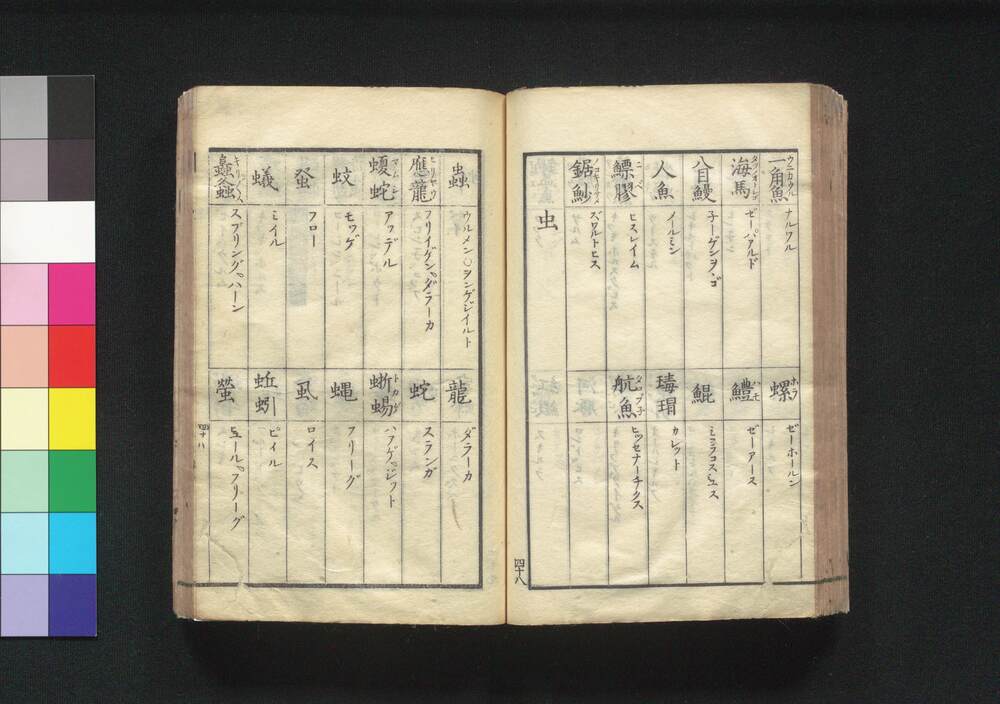 一角魚 ウニカウル
ナルワル
海馬
ゼーパアルド
八目鰻
子ーゲンヲヽゴ
人魚
メイルミン
鰾膠 ニベ
ヒスレイム
鋸鯋
ズワルトヒス
虫
螺 ホラ
ゼーホールン
鱧 ハモ
ゼーアース
鯤
瑇瑁
カレット
魧魚
ヒッセナーチクス
四十八
蟲
ウルメン○ヲンゲジイルト
應龍
フリイゲンヽダラーカ
蝮蛇 マムシ
アッデル
蚊
モッゲ
蚤
フロー
蟻
ミイル
螽 キリ〴〵ス
スプリングヽハーン
龍
ダラーカ
蛇
スランガ
蜥蜴 トカゲ
ハアゲヂット
蝿
フリーグ
虱
ロイス
蚯蚓
ピイル
螢
ヒュールヽフリーグ
四十八